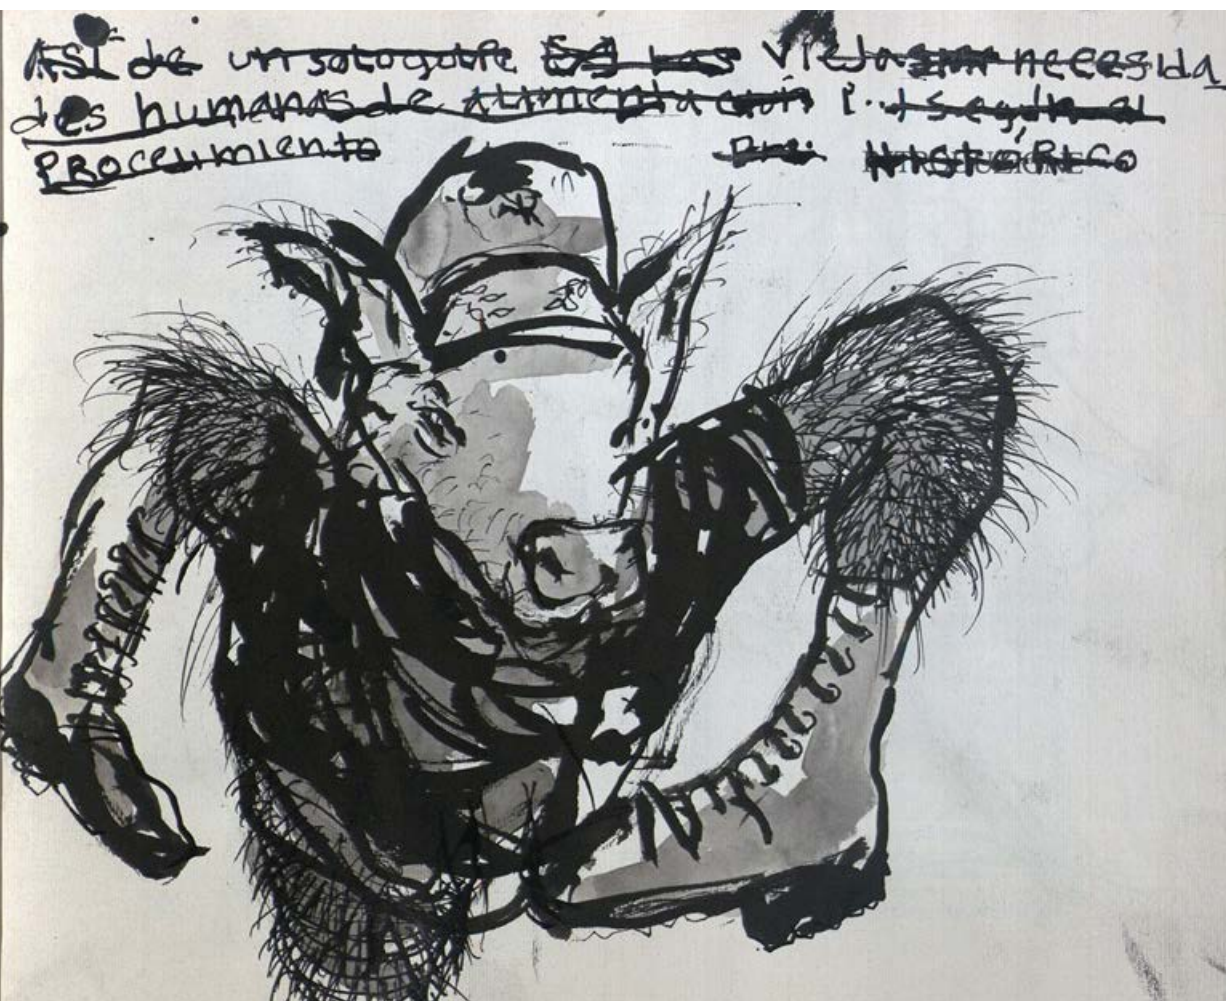 ASÍ de un solo golpe las viejas necesida
des humanas de alimentación i.. según el
PROCEDIMIENTO Pre HISTÓRICO